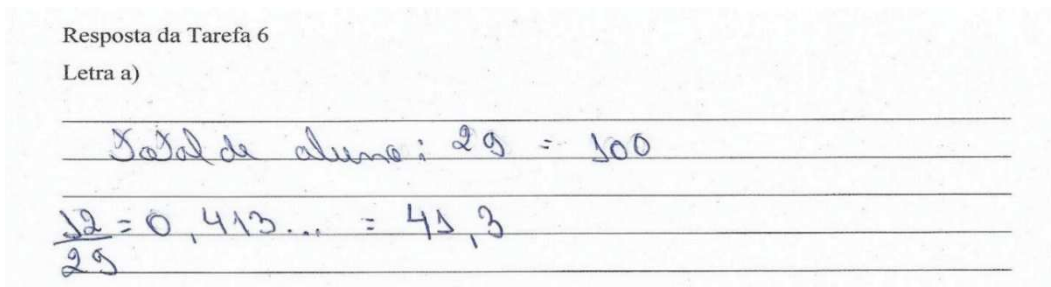 Resposta da Tarefa 6
Letra a)
Total de aluno: 29 = 100
12/29 = 0,413... = 41,3